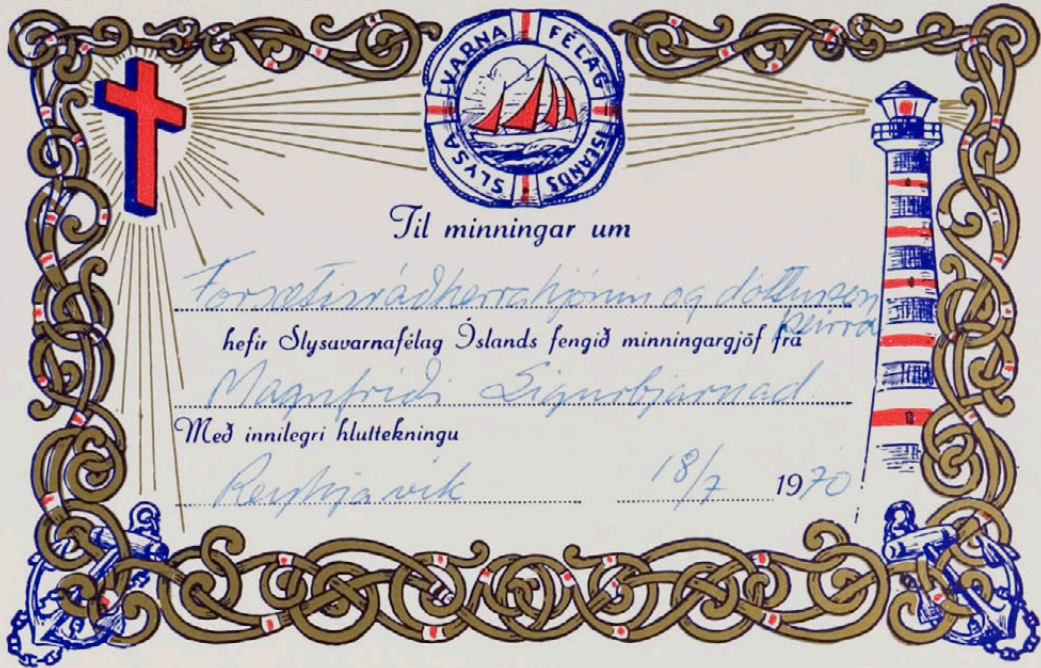 SLYSAVARNAFÉLAG ÍSLANDS
Til minningar um
Forsætisráðherrahjónin og dótturson
þeirra
hefir Slysavarnafélag Íslands fengið minningargjöf frá
Magnfríði Sigurbjarnad.
Með innilegri hluttekningu
Reykjavík 18/7 1970